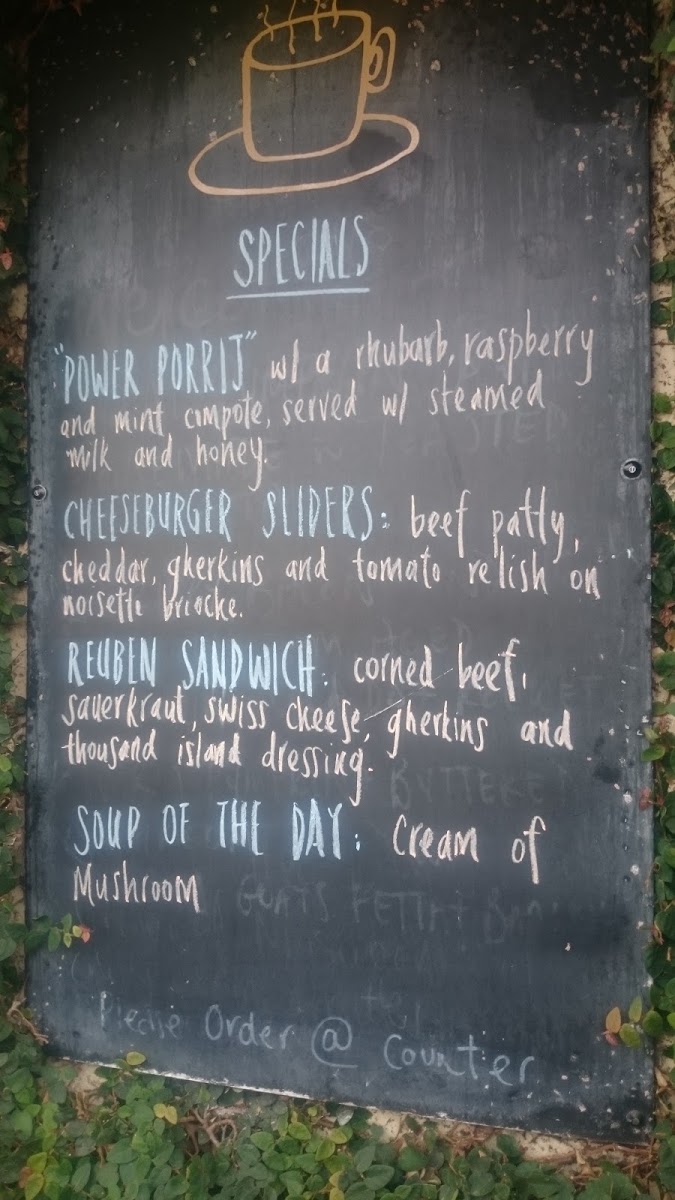 SPECIALS
"POWER PORRIJ" w/ a rhubarb, raspberry
and mint compote, served w/ steamed
milk and honey.
CHEESEBURGER SLIDERS: beef patty,
cheddar, gherkins and tomato relish on
noisette briocke.
REUBEN SANDWICH: corned beef,
sauerkraut, swiss cheese, gherkins and
thousand island dressing.
SOUP OF THE DAY: Cream of
Mushroom
Please Order @ Counter